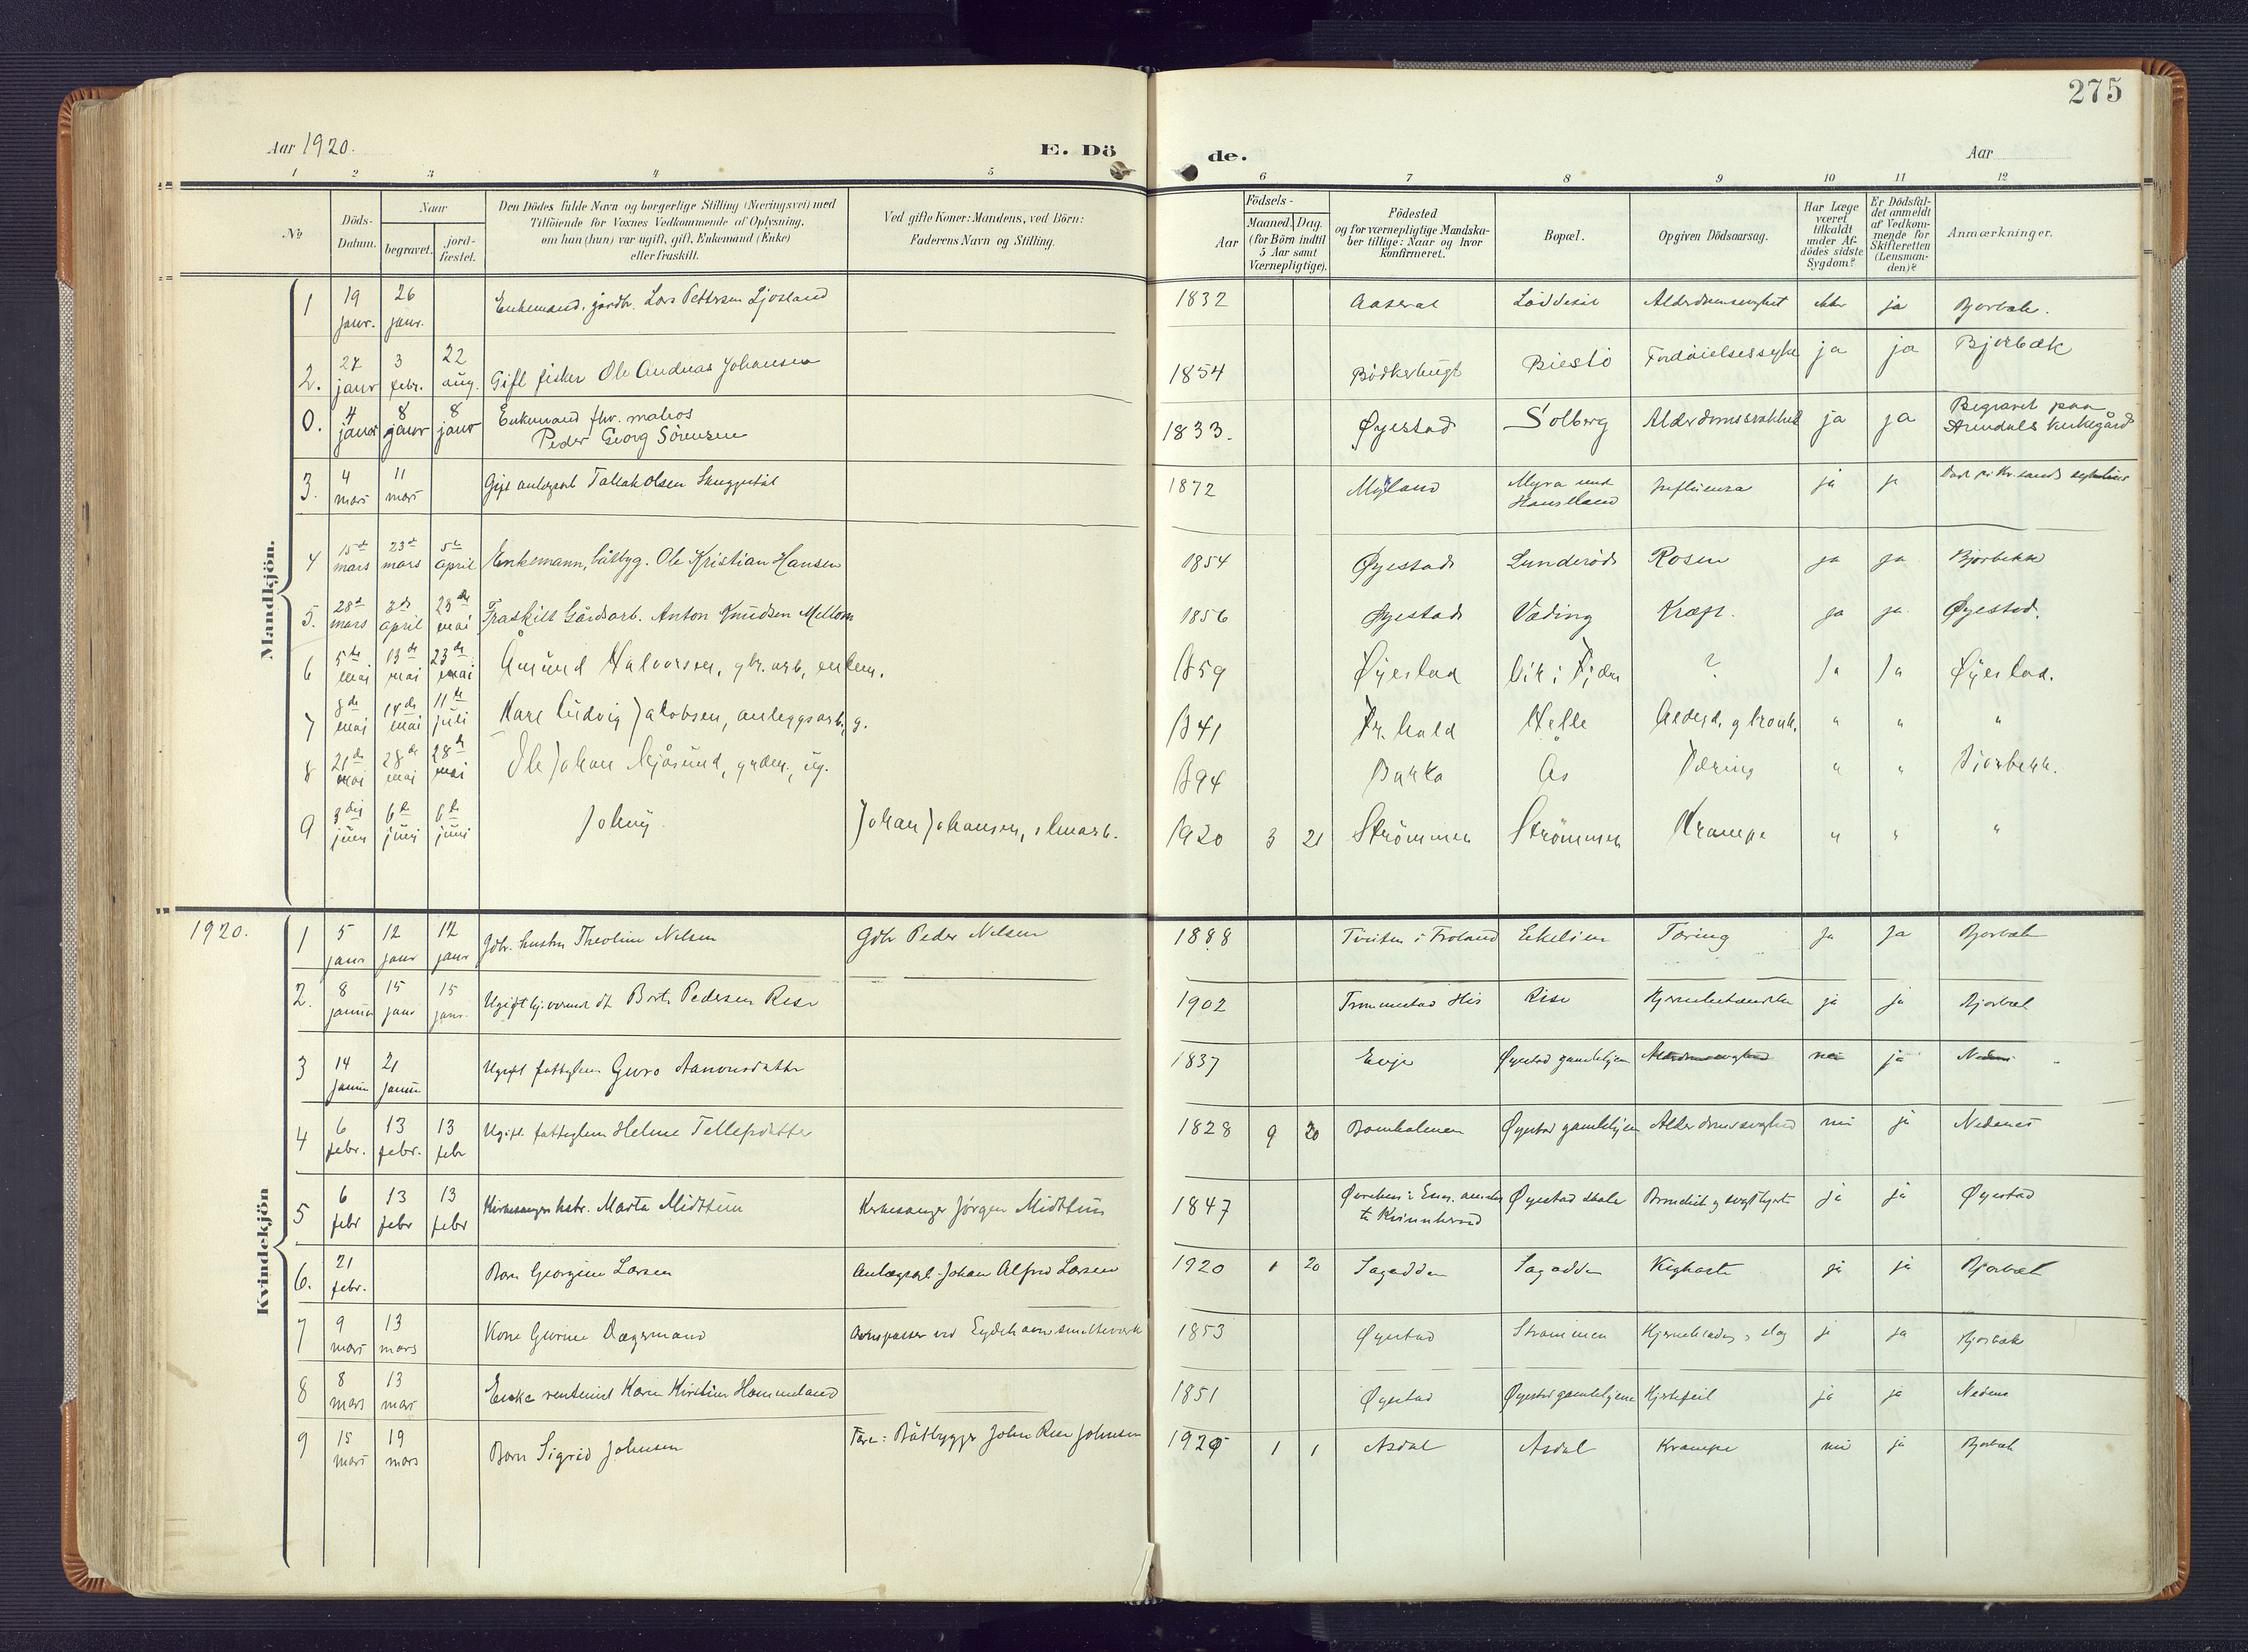 275
Aar 1920.
E. Dö
de.
Aar
1 2 3 4 5 6 7 8 9 10 11 12
No
Döds-
Datum.
Naar
begravet.
jord-
fæstet.
Den Dödes fulde Navn og borgerlige Stilling (Næringsvei) med
Tilföiende for Voxnes Vedkommende af Oplysning,
om han (hun) var ugift, gift, Enkemand (Enke)
eller fraskilt.
Ved gifte Koner: Mandens, ved Börn:
Faderens Navn og Stilling.
Födsels-
Aar
Maaned. Dag.
(for Börn indtil
5 Aar samt
Værnepligtige).
Födested
og for værnepligtige Mandska-
ber tillige: Naar og hvor
konfirmeret.
Bopæl.
Opgiven Dödsaarsag.
Har Læge
været
tilkaldt
under Af-
dödes sidste
Sygdom?
Er Dödsfal-
det anmeldt
af Vedkom-
mende for
Skifteretten
(Lensman-
den)?
Anmærkninger.
Mandkjön.
1 19 janr. 26 janr. Enkemand, gardbr. Lars Pettersen Ljosland 1832 Aaseral Alderdomssvaghet ja Bjorbæk.
2. 27 janr 3 febr. 22 aug. Gift fisker Ole Andreas Johansen 1854 Bödkerbugt Biestö Fordöielsessyke ja ja Bjorbæk
0. 4 janr 8 janr 8 janr Enkemand fhv. matros
Peder Georg Sörensen 1833. Øyestad Solberg Alderdomssvakhet ja ja Begravet paa
Arendals kirkegård
3. 4 mars 11 mars Gift anlægsarb Tallak Olsen 1872 Mykland Myra Influensa ja ja
4 15de mars 23de mars 5te april Enkemann, båtbyg. Ole Kristian Hansen 1854 Øyestad Lunderöd Rosen ja ja Bjorbekk
5. 28de mars 3die april 23de mai Fraskilt Gårdsarb. Anton Knudsen Mellom 1856 Øyestad Væding Kræft. ja ja Øyestad.
6 5te mai 13de mai 23de mai Åmund Halvorsen, gbr. arb, enkem. 1859 Øyestad Vik i Fjære ? Ja Ja Øyestad.
7 8de mai 14de mai 11te juli Karl Ludvig Jakobsen, anleggsarb, g. 1841 Fr. hald Helle Alderd. g bronk. " " "
8 21de mai 28de mai 28de mai Ole Johan Mjåsund, ug. 1894 Bakka Ås Tæring " " Bjorbekk.
9 3die juni 6te juni 6te juni Johny Johan Johansen, 1920 3 21 Strömmen Strömmen Krampe " " "
1920.
Kvindekjön
1 5 janr 12 janr 12 janr Gdbr. hustru Theoline Nelsen Gdbr Peder Nelsen 1888 Tveiten i Froland Ekelien Tæring ja ja Bjorbæk
2. 8 januar 15 janr 15 janr. Pedersen Rise 1902 Trommestad His Rise ja ja Bjorbæk
3 14 januar 21 januar Ugift fattiglem Guro Aanonsdatter 1837 Evje Øyestad gamlehjem Alderdomssvaghed nei ja Nedenes
4 6 febr. 13 febr. 13 febr Ugift fattiglem Helene Tellefsdatter 1828 9 20 Bomholmen Øyestad gamlehjem Alderdomssvaghed nei ja Nedenes
5 6 febr 13 febr 13 febr Kirkesanger hstr. Marta Midttun Kirkesanger Jörgen Midttun 1847 Øyestad skole ja ja Øyestad
6. 21 febr. Barn Georgine Larsen Anlægsarb. Johan Alfred Larsen 1920 1 20 Sagodden Sagodden Kighoste ja ja Bjorbæk
7 9 mars 13 mars Kone Gurine Dagsmand Ovnspasser ved Eydehavn smelteverk 1853 Øyestad Strömmen ja ja Bjorbæk
8 8 mars 13 mars Enke Karen Kirstine Hammeland 1851 Øyestad Øyestad gamlehjem Hjertefeil ja ja Nedenes
9 15 mars 19 mars Barn Sigrid Johnsen Far: Båtbygger John Rise Johnsen 1920 1 1 Asdal Asdal Krampe nei ja Bjorbæk